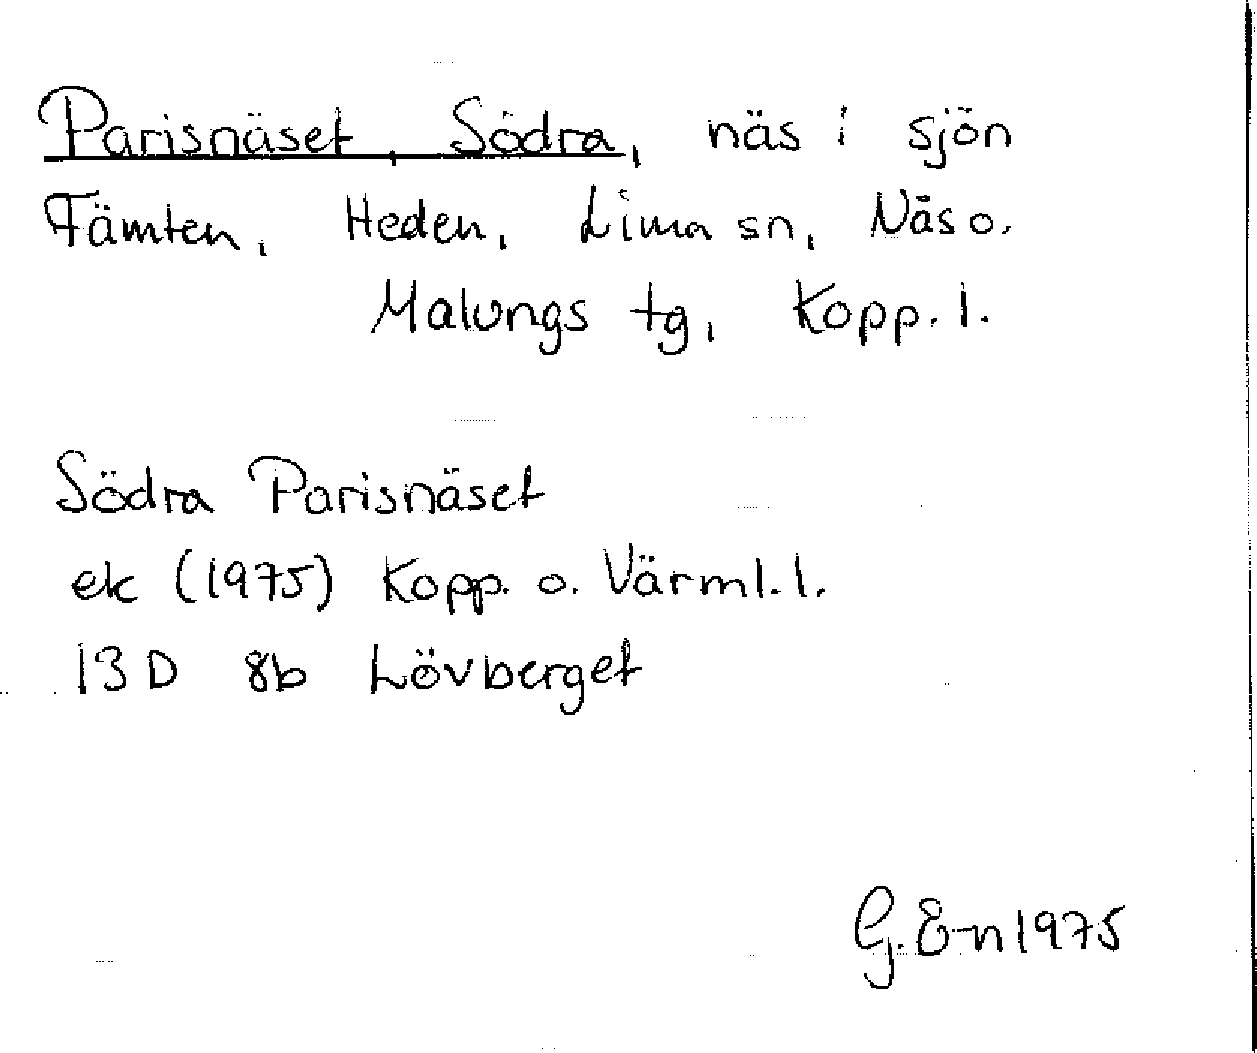 Parisnäset, Södra, näs i sjön
Fämten, Heden, Lima sn, Näs o.
Malungs tg, Kopp. l.
Södra Parisnäset
ek (1975) Kopp. o. Värml. l.
13 D 8b Lövberget
G. E-n 1975